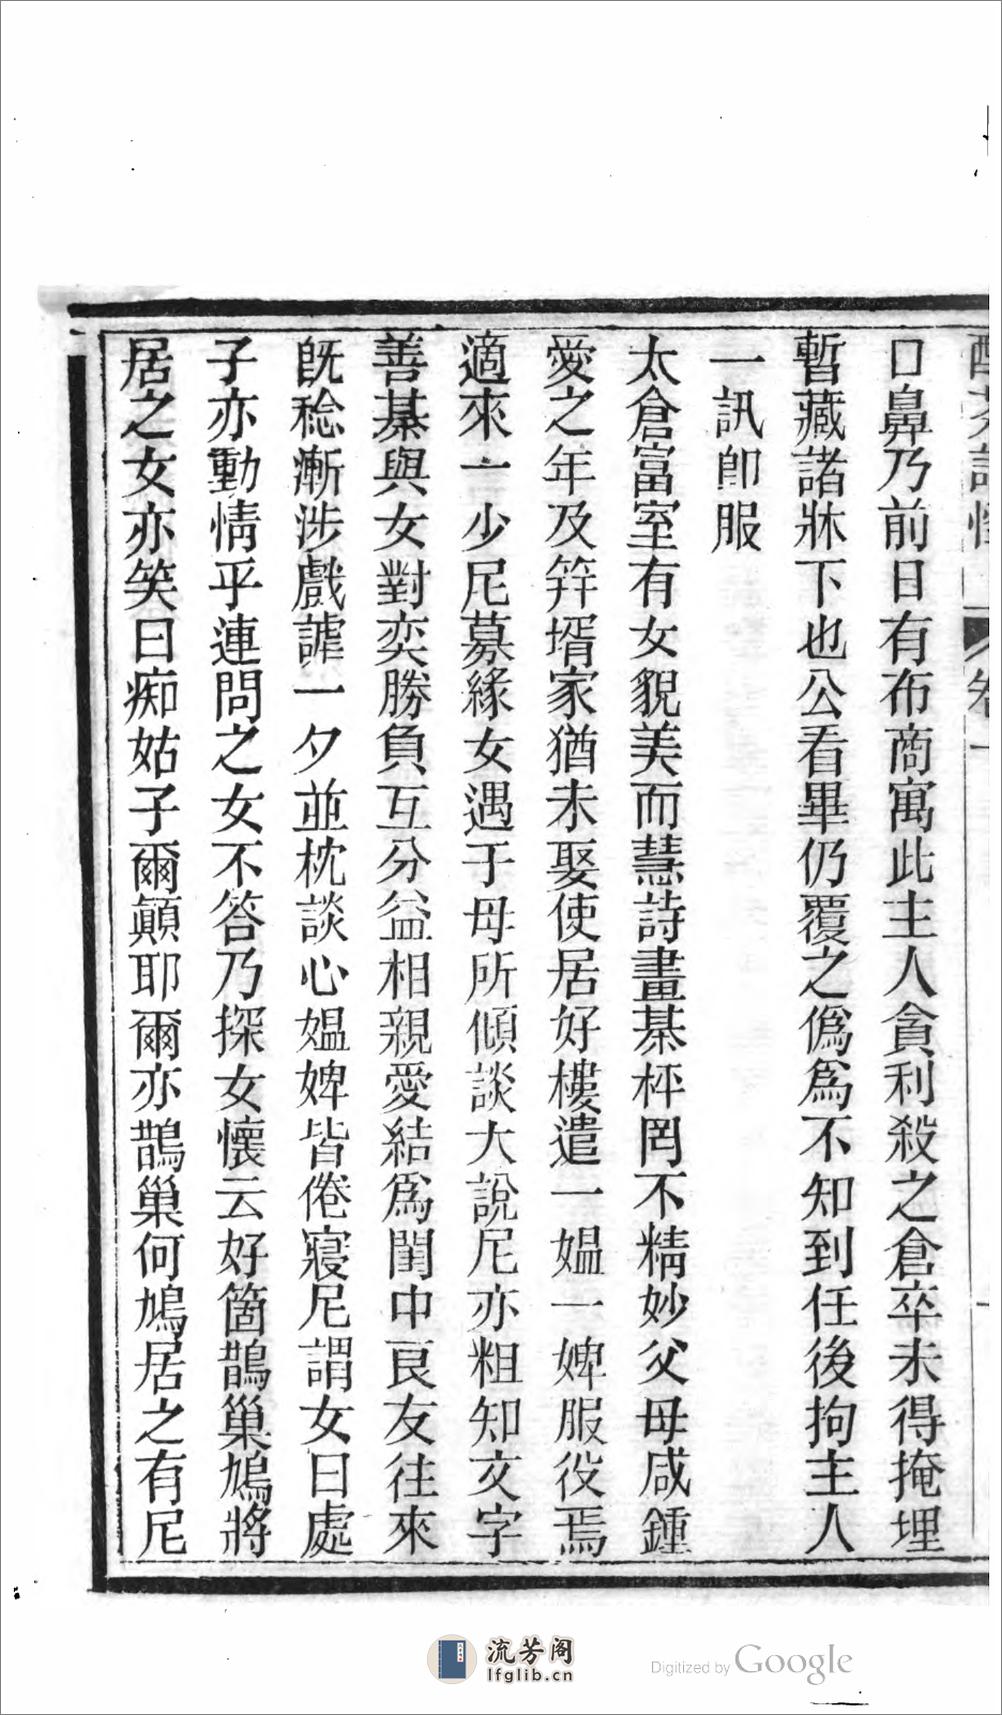 卷一
口鼻乃前日有布商寓此主人貪利殺之倉卒未得掩埋
暫藏諸牀下也公看畢仍覆之僞爲不知到任後拘主人
一訊卽服
太倉富室有女貌美而慧詩畫棊枰罔不精妙父母咸鍾
愛之年及笄壻家猶未娶使居好樓遣一媼一婢服役焉
適來一少尼募緣女遇于母所傾談大說尼亦粗知文字
善棊與女對奕勝負互分益相親愛結爲閨中良友往來
旣稔漸涉戲謔一夕並枕談心媼婢皆倦寢尼謂女曰處
子亦動情乎連問之女不答乃探女懷云好箇鵲巢鳩將
居之女亦笑曰痴姑子爾顚耶爾亦鵲巢何鳩居之有尼
流芳阁
lfglib.cn
Digitized by Google